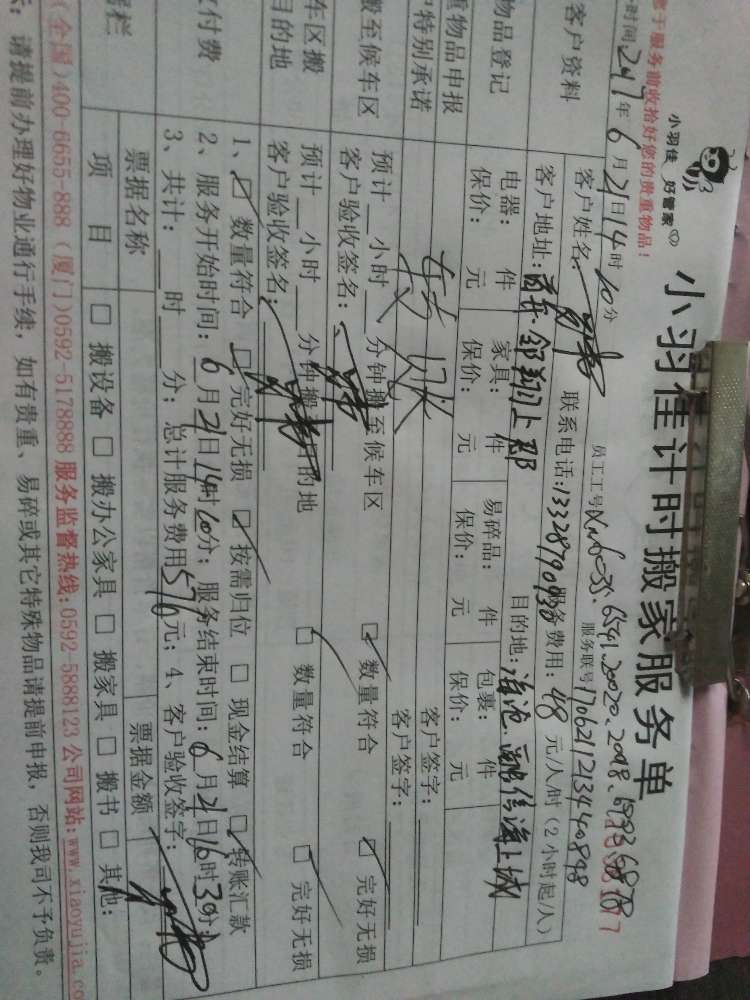 小羽佳 好管家
小羽佳计时搬家服务单
您于服务前收拾好您的贵重物品!
时间 2017年6月21日14时10分 员工工号 6541.20020.2098.
服务联号1706211213440898
客户资料 客户姓名: 联系电话: 服务费用: 48 元/人/时(2小时起/人)
客户地址: 目的地:
物品登记 电器: 件 家具: 件 易碎品: 件 包裹: 件
重物品申报 保价: 元 保价: 元 保价: 元 保价: 元
特别承诺 转账 客户签字:
客户签字:
搬至候车区 预计__小时__分钟搬至候车区 □ 数量符合 □ 完好无损
客户验收签名:
车区搬 预计__小时__分钟搬 目的地 □ 数量符合 □ 完好无损
目的地 客户验收签名:
付费 1、□ 数量符合 □ 完好无损 □ 按需归位 □ 现金结算 □ 转账汇款
2、服务开始时间: 6月21日14时10分; 服务结束时间: 6月21日16时30分;
3、共计:__时__分; 总计服务费用576元; 4、客户验收签字:
栏 票据名称 票据金额
项 目 □ 搬设备 □ 搬办公家具 □ 搬家具 □ 搬书 □ 其他:
(全国)400-6655-888 (厦门)0592-5178888 服务监督热线:0592-5888123 公司网站:www.xiaoyujia.co
请提前办理好物业通行手续,如有贵重、易碎或其它特殊物品请提前申报,否则我司不予负责。